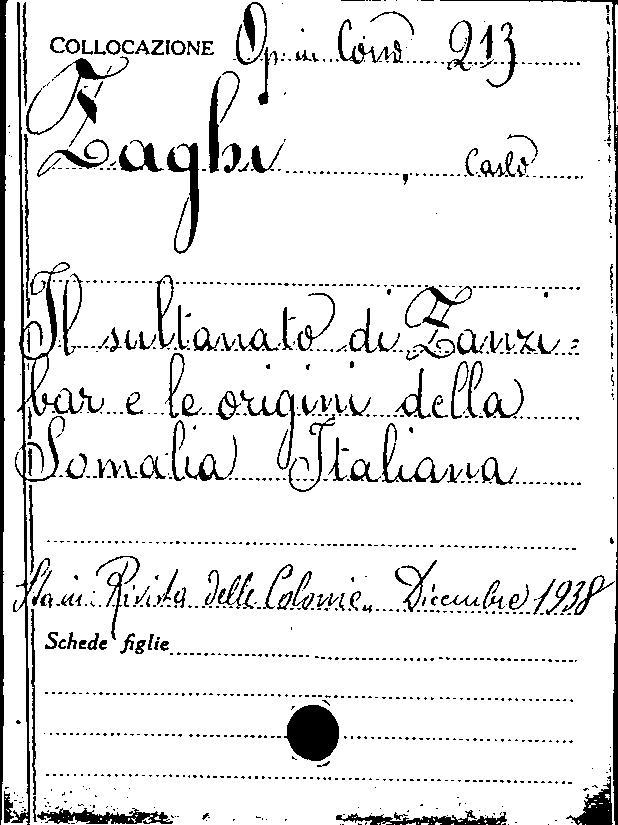 COLLOCAZIONE Op. in Cons 213
Zaghi, Carlo
Il sultanato di Zanzi=
bar e le origini della
Somalia Italiana
Sta in: Rivista delle Colonie„ Dicembre 1938
Schede figlie